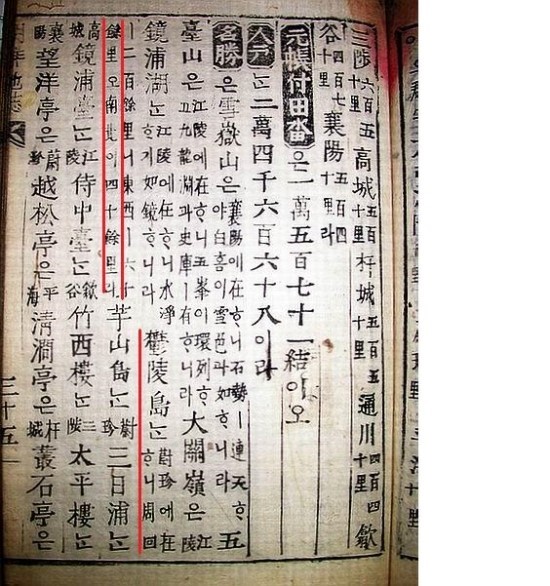 三陟六百五十里 高城五百十里 杆城五百五十里 通川四百四十里 歙
谷四百七十里 襄陽五百四十里라
元帳付田畓은一萬五百七十一結이오
人戶는二萬四千六百六十八이라
名勝은雪嶽山은襄陽에在ᄒᆞ니石勢ㅣ連天ᄒᆞ야白흠이雪色과如ᄒᆞ니라 五
臺山은江陵에在ᄒᆞ니五峯이環列ᄒᆞ고九龍淵과史庫ㅣ有ᄒᆞ니라 大關嶺은江陵
鏡浦湖는江陵에在ᄒᆞ니水淨ᄒᆞ기如鏡ᄒᆞ니라 鬱陵島는蔚珍에在ᄒᆞ니周回
二百餘里니東西ㅣ六十餘里오南北이四十餘里라 芋山島는蔚珍 三日浦는
高城 鏡浦臺는江陵 侍中臺는歙谷 竹西樓는三陟 太平樓는
襄陽 望洋亭은蔚珍 越松亭은平海 淸澗亭은杆城 叢石亭은
地誌 三十五